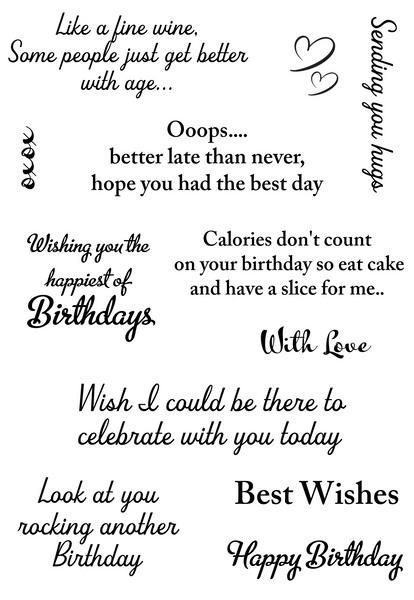 Like a fine wine,
Some people just get better
with age...
Sending you hugs
xoxo
Ooops....
better late than never,
hope you had the best day
Wishing you the
happiest of
Birthdays
Calories don't count
on your birthday so eat cake
and have a slice for me..
With Love
Wish I could be there to
celebrate with you today
Look at you
rocking another
Birthday
Best Wishes
Happy Birthday